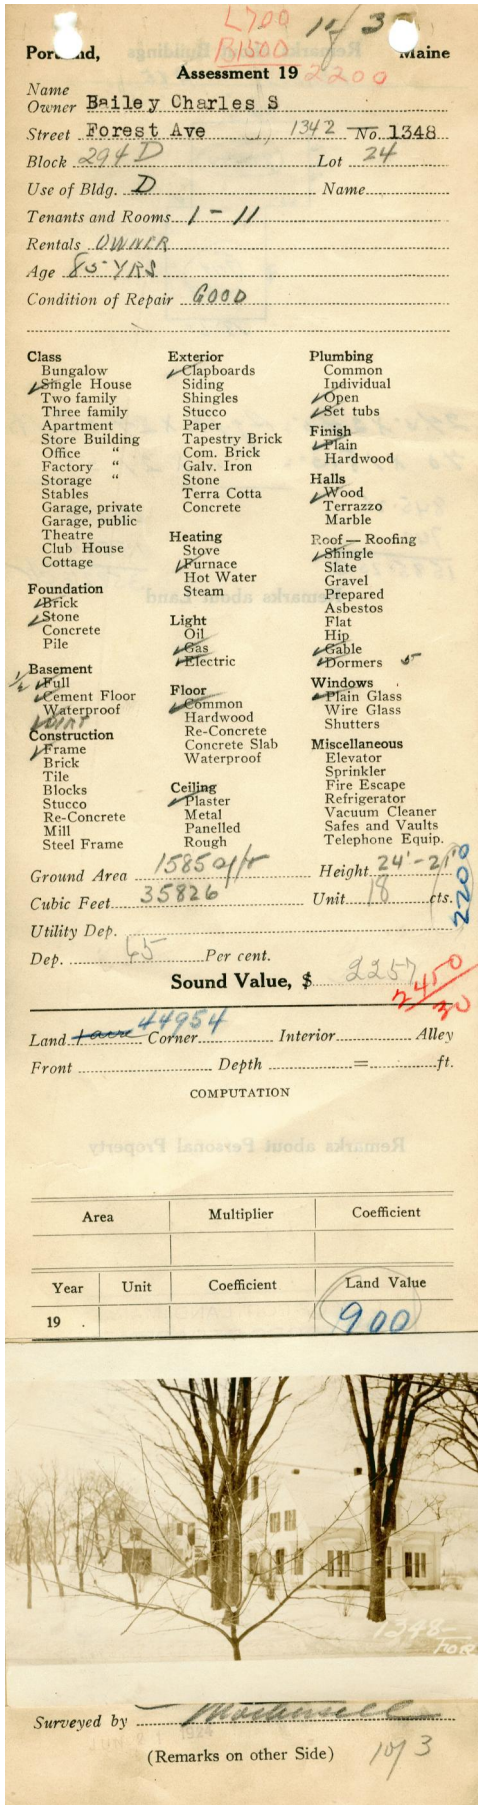 L 700
B 1500
11/3
Portland, Maine
Assessment 19 2200
Name
Owner Bailey Charles S
Street Forest Ave 1342 — No. 1348
Block 294 D Lot 24
Use of Bldg. D Name
Tenants and Rooms 1 - 11
Rentals OWNER
Age 85 YRS
Condition of Repair GOOD
Class
Bungalow
Single House
Two family
Three family
Apartment
Store Building
Office "
Factory "
Storage "
Stables
Garage, private
Garage, public
Theatre
Club House
Cottage
Foundation
Brick
Stone
Concrete
Pile
Basement
1/2 Full
Cement Floor
Waterproof
Construction
Frame
Brick
Tile
Blocks
Stucco
Re-Concrete
Mill
Steel Frame
Exterior
Clapboards
Siding
Shingles
Stucco
Paper
Tapestry Brick
Com. Brick
Galv. Iron
Stone
Terra Cotta
Concrete
Heating
Stove
Furnace
Hot Water
Steam
Light
Oil
Gas
Electric
Floor
Common
Hardwood
Re-Concrete
Concrete Slab
Waterproof
Ceiling
Plaster
Metal
Panelled
Rough
Plumbing
Common
Individual
Open
Set tubs
Finish
Plain
Hardwood
Halls
Wood
Terrazzo
Marble
Roof — Roofing
Shingle
Slate
Gravel
Prepared
Asbestos
Flat
Hip
Gable
Dormers 5
Windows
Plain Glass
Wire Glass
Shutters
Miscellaneous
Elevator
Sprinkler
Fire Escape
Refrigerator
Vacuum Cleaner
Safes and Vaults
Telephone Equip.
Ground Area 1585 Height 24'-21'
Cubic Feet 35826 Unit 18 cts.
2200
Utility Dep.
Dep. 65 Per cent.
Sound Value, $ 2257
2450
30
Land 44954 Corner Interior Alley
Front Depth = ft.
COMPUTATION
Area Multiplier Coefficient
Year Unit Coefficient Land Value
19 . 900
1348-
FOR
Surveyed by
(Remarks on other Side) 1 of 3